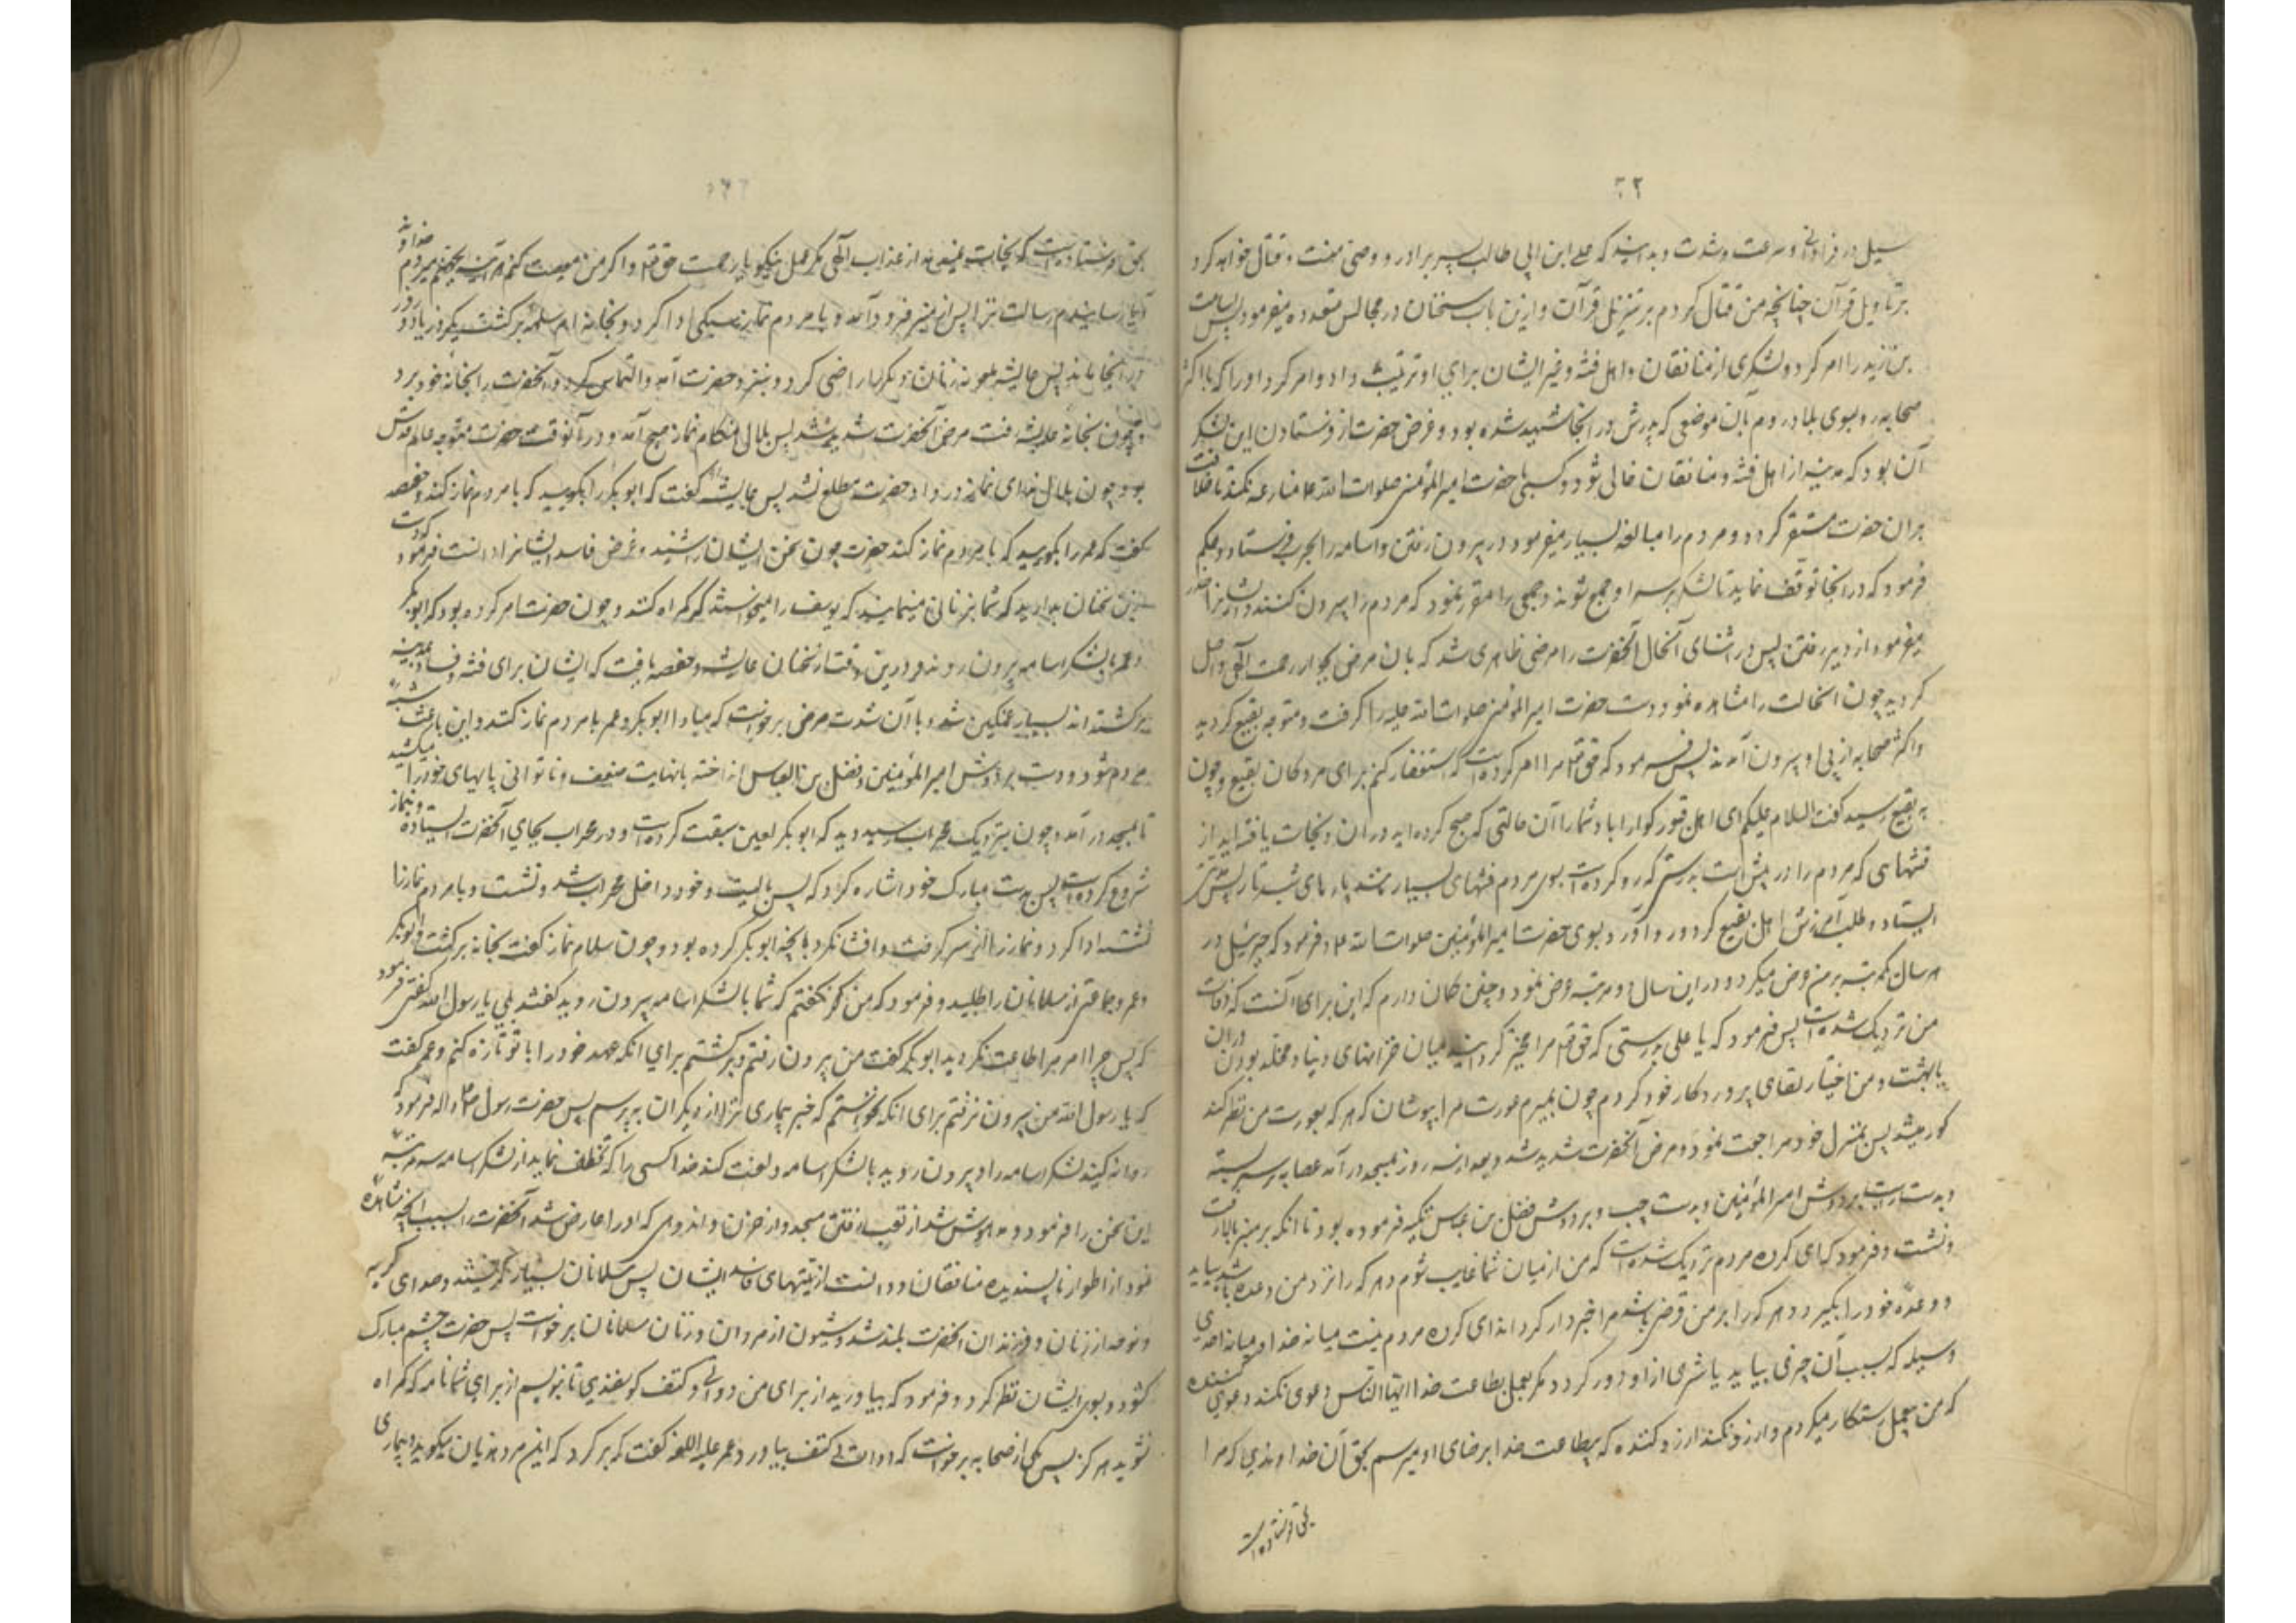 سیل در فراوانی و سرعت و شدت و بدانید که علی ابن ابی طالب پسر برادر و وصی منست و قتال خواهد کرد
بر تاویل قرآن چنانچه من قتال کردم بر تنزیل قرآن و ازین باب سخنان در مجالس متعدده میفرمود پس اسامة
بن زید را امر کرد و لشکری از منافقان و اهل فتنه و غیر ایشان برای او ترتیب داد و امر کرد او را که با اکثر
صحابه رو بسوی بلاد روم بآن موضعی که پدرش در انجا شهید شده بود و غرض حضرت از فرستادن این لشکر
آن بود که مدینه از اهل فتنه و منافقان خالی شود و کسی با حضرت امیرالمؤمنین صلوات الله علیه منازعه نکند تا خلافت
بران حضرت مستقر گردد و مردم را مبالغه بسیار میفرمود در بیرون رفتن و اسامه را بجرف فرستاد و حکم
فرمود که در انجا توقف نماید تا لشکر بر سر او جمع شوند و جمعی را مقرر نمود که مردم را بیرون کنند و ایشانرا حذر
میفرمود از دیر رفتن پس در اثنای آنحال آنحضرت را مرضی طاری شد که بان مرض بجوار رحمت الهی واصل
گردید چون انحالت را مشاهده نمود دست حضرت امیرالمؤمنین صلوات الله علیه را گرفت و متوجه بقیع گردید
و اکثر صحابه از پی او بیرون آمدند پس فرمود که حق تع مرا امر کرده است که استغفار کنم برای مردکان بقیع و چون
به بقیع رسید گفت السلام علیکم ای اهل قبور کوارا باد شما را آن حالتی که صبح کرده‌اید در ان و نجات یافته‌اید از
فتنهای که مردم را در پیش است بدرستی که رو کرده است بسوی مردم فتنهای بسیار مانند پارهای شب تار پس مدتی
ایستاد و طلب آمرزش اهل بقیع کرد و رو آورد بسوی حضرت امیرالمؤمنین صلوات الله علیه و فرمود که جبرئیل در
هر سال یکمرتبه بر من عرض میکرد و در این سال دو مرتبه عرض نمود و چنین کمان دارم که این برای آنست که وفات
من نزدیک شده است پس فرمود که یا علی بدرستی که حق تع مرا مخیر گردانید میان خزانهای دنیا و مخلد بودن در ان
یا بهشت و من اختیار لقای پروردکار خود کردم چون بمیرم عورت مرا بپوشان که هر که بعورت من نظر کند
کور میشد پس بمنزل خود مراجعت نمود و مرض آنحضرت شدید شد و بعد از سه روز بمسجد در آمد عصابه بر سر بسته
و بدست راست بر دوش امیرالمؤمنین و بدست چپ بر دوش فضل بن عباس تکیه فرموده بود تا انکه بر منبر بالا رفت
و نشست و فرمود که ای کروه مردم نزدیک شده است که من از میان شما غایب شوم و هر که را نزد من وعده باشد بیاید
و وعده خود را بکیرد و هر که را بر من قرضی باشد مرا خبردار کرداند ای کروه مردم نیست میانه خدا و میانه احدی
وسیله که بسبب آن چیزی بیابد یا شری از او دور کردد مکر بعمل بطاعت خدا ایها الناس دعوی نکند دعوی کننده
که من بی‌عمل رستکار میکردم و ارزو نکند ارزو کننده که بی‌طاعت خدا برضای او میرسم بحق آن خداوندی که مرا
بحق فرستاده است
بحق فرستاده است که نجات نمیدهد از عذاب الهی مکر عمل نیکو با رحمت حق تع و اکر من معصیت کنم هر آینه بجهنم میروم خداوندا
آیا رسانیدم رسالت ترا پس از منبر فرود آمد و با مردم نماز سبکی ادا کرد و بخانه ام سلمه برکشت و یکروز یا دو روز
در انجا ماند پس عایشه ملعونه زنان دیکر را راضی کرد و بنزد حضرت آمد و التماس کرد و آنحضرت را بخانه خود برد
و چون بخانه عایشه رفت مرض آنحضرت شدید شد پس بلال هنکام نماز صبح آمد و در آنوقت حضرت متوجه عالم قدس
بود چون بلال ندای نماز در داد حضرت مطلع نشد پس عایشه گفت که ابوبکر را بکویید که با مردم نماز کند و حفصه
گفت که عمر را بکویید که با مردم نماز کند حضرت چون سخن ایشان را شنید و غرض فاسد ایشانرا دانست فرمود که دست
ازین سخنان بدارید که شما بزنانی میمانید که یوسف را میخواستند که کمراه کنند و چون حضرت امر کرده بود که ابوبکر
و عمر با لشکر اسامه بیرون روند و درین وقت از سخنان عایشه و حفصه یافت که ایشان برای فتنه و فساد بمدینه
برکشته‌اند بسیار غمکین شد و با آن شدت مرض برخواست که مبادا ابوبکر و عمر با مردم نماز کنند و این باعث شبه
مردم شود و دست بر دوش امیرالمؤمنین و فضل بن العباس انداخته با نهایت ضعف و ناتوانی پایهای خود را میکشید
تا بمسجد در آمد و چون نزدیک محراب رسید دید که ابوبکر لعین سبقت کرده است و در محراب بجای آنحضرت ایستاده و نماز
شروع کرده است پس بدست مبارک خود اشاره کرد که پس بایست و خود داخل محراب شد و نشست و با مردم نماز را
نشسته ادا کرد و نماز را از سر کرفت و اعتنا نکرد بانچه ابوبکر کرده بود و چون سلام نماز گفت بخانه برکشت و ابوبکر
و عمر و جماعتی از مسلمانان را طلبید و فرمود که من مکر نکفتم که شما با لشکر اسامه بیرون روید کفتند بلی یا رسول الله کفتی فرمود
که پس چرا امر مرا اطاعت نکردید ابوبکر گفت من بیرون رفتم و برکشتم برای انکه عهد خود را با تو تازه کنم و عمر گفت
که یا رسول الله من بیرون نرفتم برای انکه نخواستم که خبر بیماری ترا از دیکران بپرسم پس حضرت رسول ص و اله فرمود که
روانه کنید لشکر اسامه را و بیرون روید با لشکر اسامه و لعنت کند خدا کسی را که تخلف نماید از لشکر اسامه سه مرتبه
این سخن را فرمود و مدهوش شد از تعب رفتن مسجد و از حزن و اندوهی که او را عارض شد آنحضرت را بسبب آنچه مشاهده
نمود از اطوار ناپسندیده منافقان و دانست از نیتهای فاسد ایشان پس مسلمانان بسیار کریستند و صدای کریه
و نوحه از زنان و فرزندان آنحضرت بلند شد و شیون از مردان و زنان مسلمانان برخواست پس حضرت چشم مبارک
کشود و بسوی ایشان نظر کرد و فرمود که بیاورید از برای من دواتی و کتف کوسفندی تا بنویسم از برای شما نامه که کمراه
نشوید هرکز پس یکی از صحابه برخواست که دوات و کتف بیاورد عمر علیه اللعنه گفت که برکرد که این مرد هذیان میکوید و بیماری